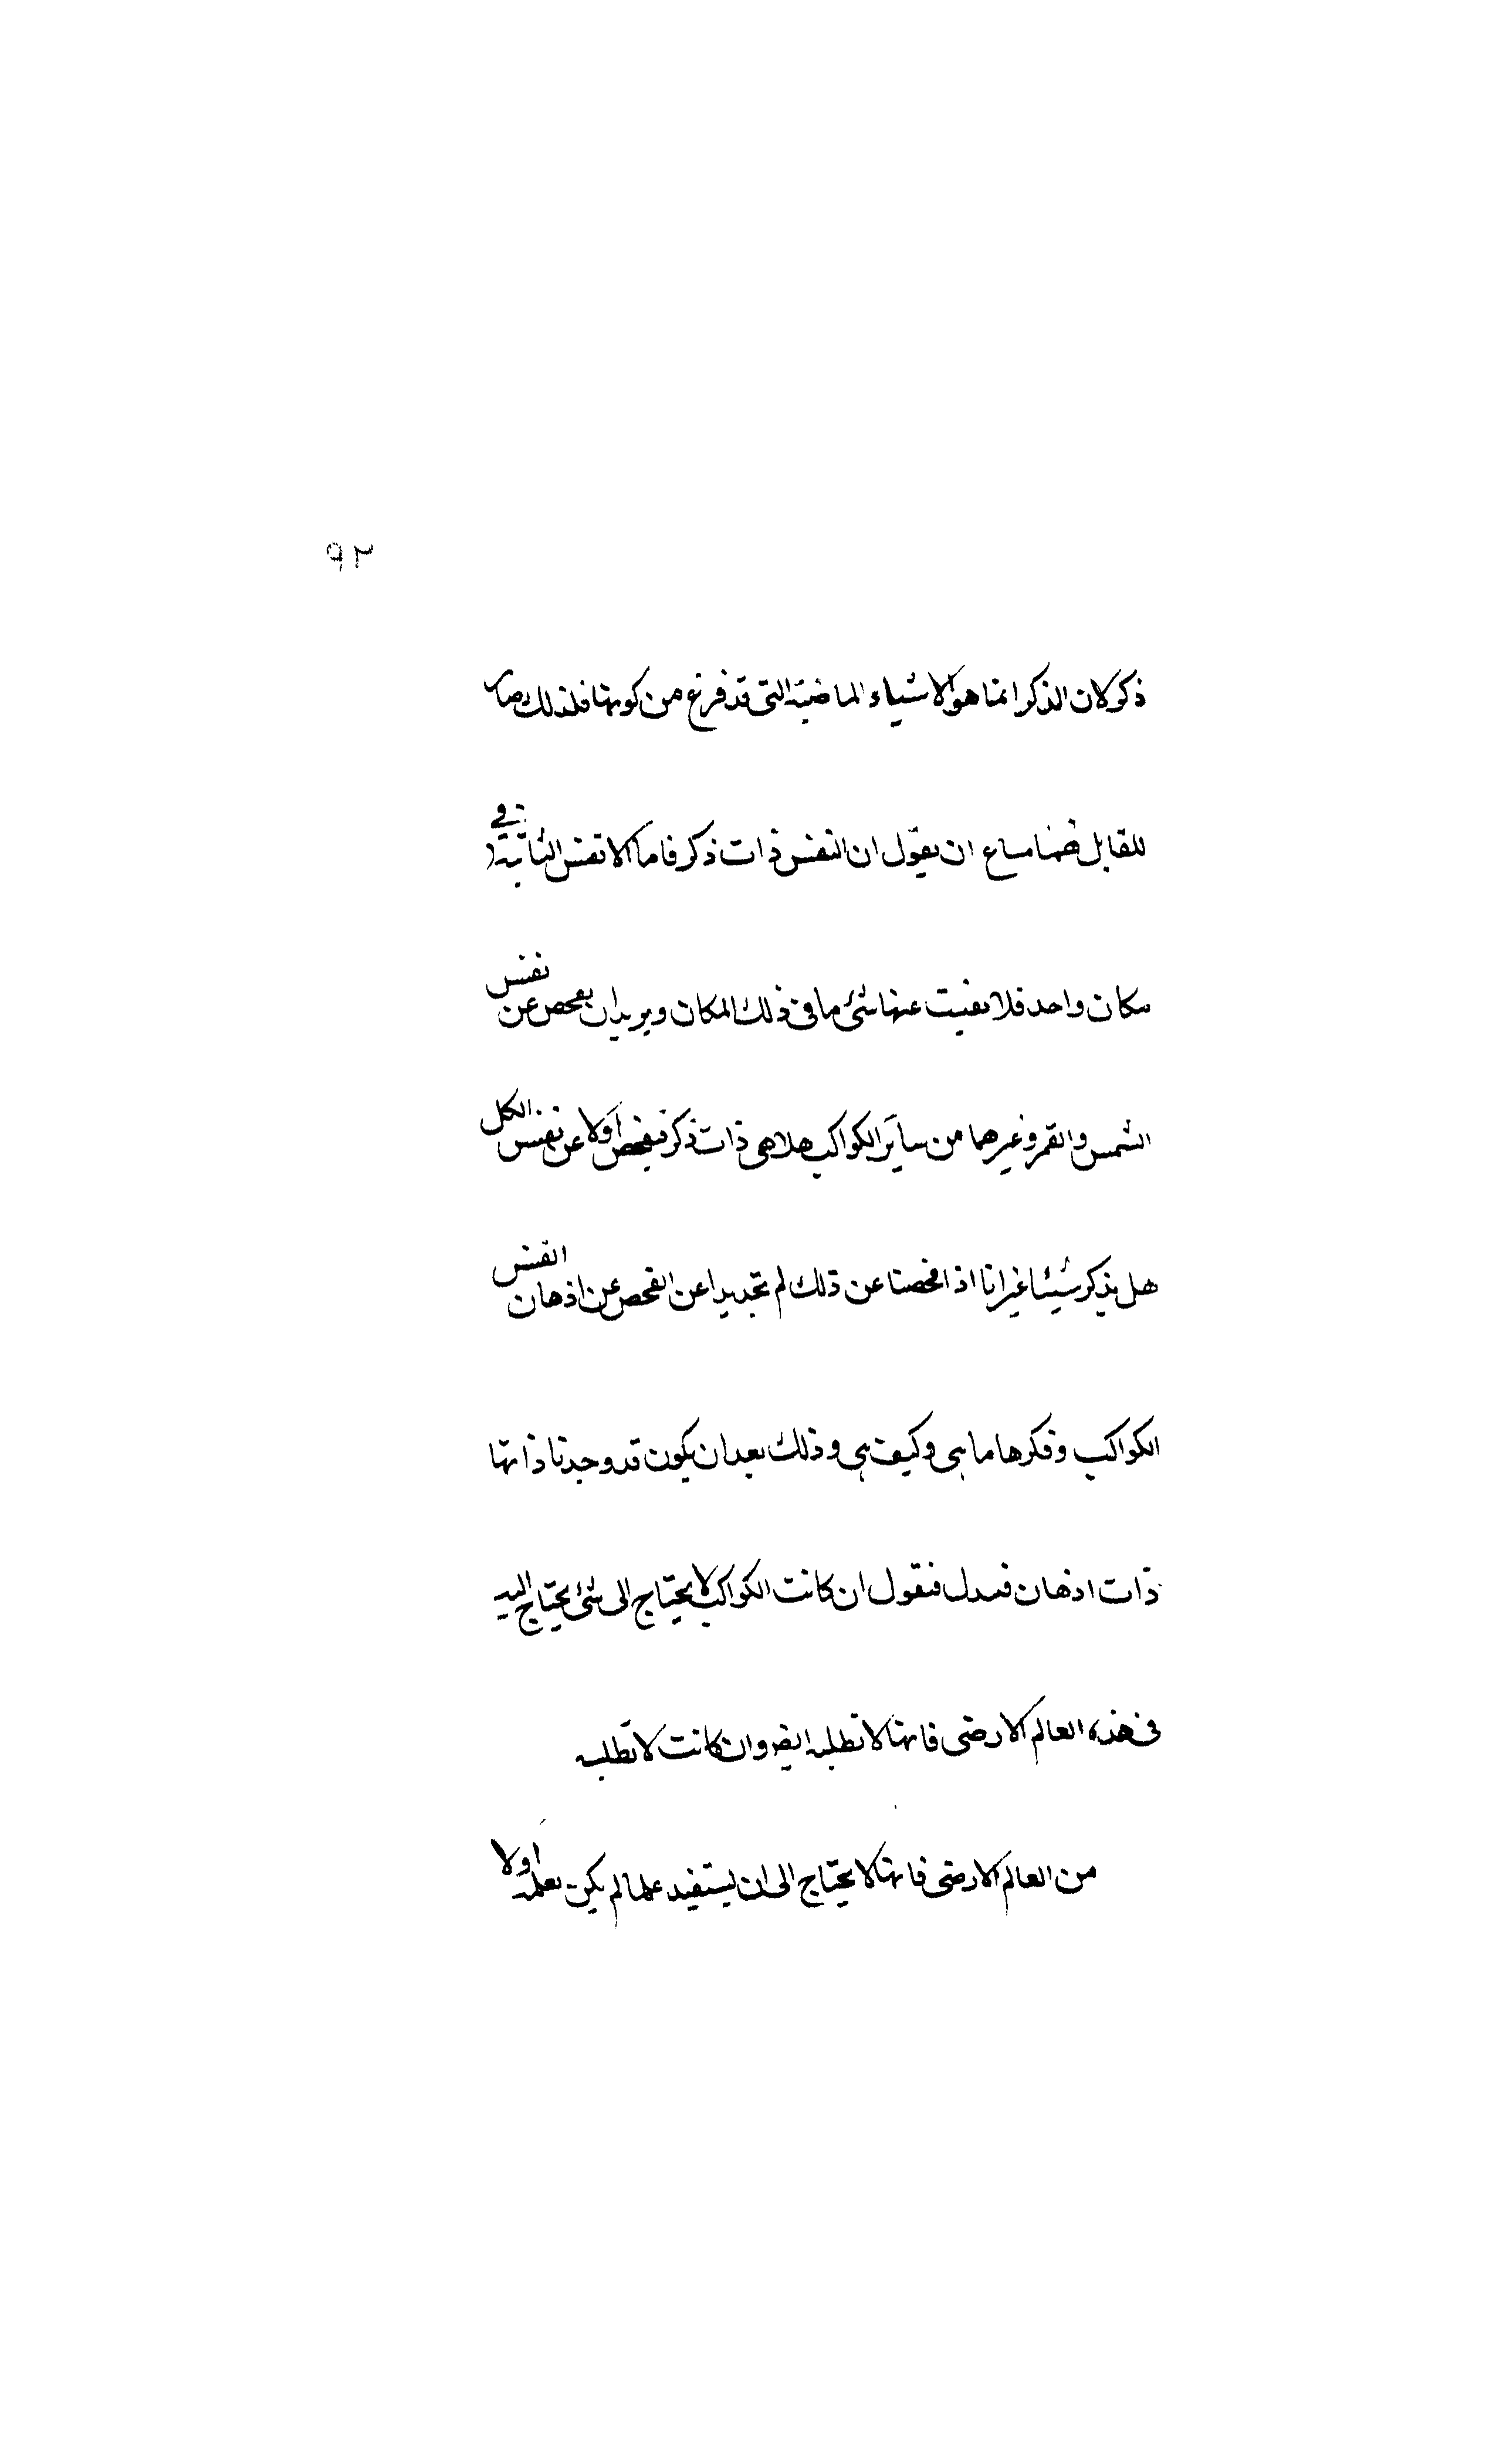 ٩٢
ذكر لان الذكر انما هو الاشياء الماضية التى قد فرغ من كونها فلذلك صار
للقايل ههنا مساع ان يقول ان النفس ذات ذكر فاما الانفس الثابتة فى
مكان واحد فلا يفيت عنها شئ ما فى ذلك المكان ويريد ان يفحص عن نفس
الشمس والقمر وغيرهما من ساير الكواكب هل هى ذات ذكر فيفحص اولا عن نفس الكل
هل يذكر شيئا غير انا اذا فحصنا عن ذلك لم نجد بدا عن الفحص عن اذهان انفس
الكواكب وفكرها ما هى وكيف هى وذلك بعد ان يكون قد وجدنا ذاتها
ذات اذهان فنقول ان كانت الكواكب لا يحتاج الى شئ يحتاج اليه
فى هذه العالم الارضى فانها لا تطلبه ايضو وان كانت لا تطلبه
من العالم الارضى فانها لا يحتاج الى ان يستفيد علما لم يكن يعلمه اولا